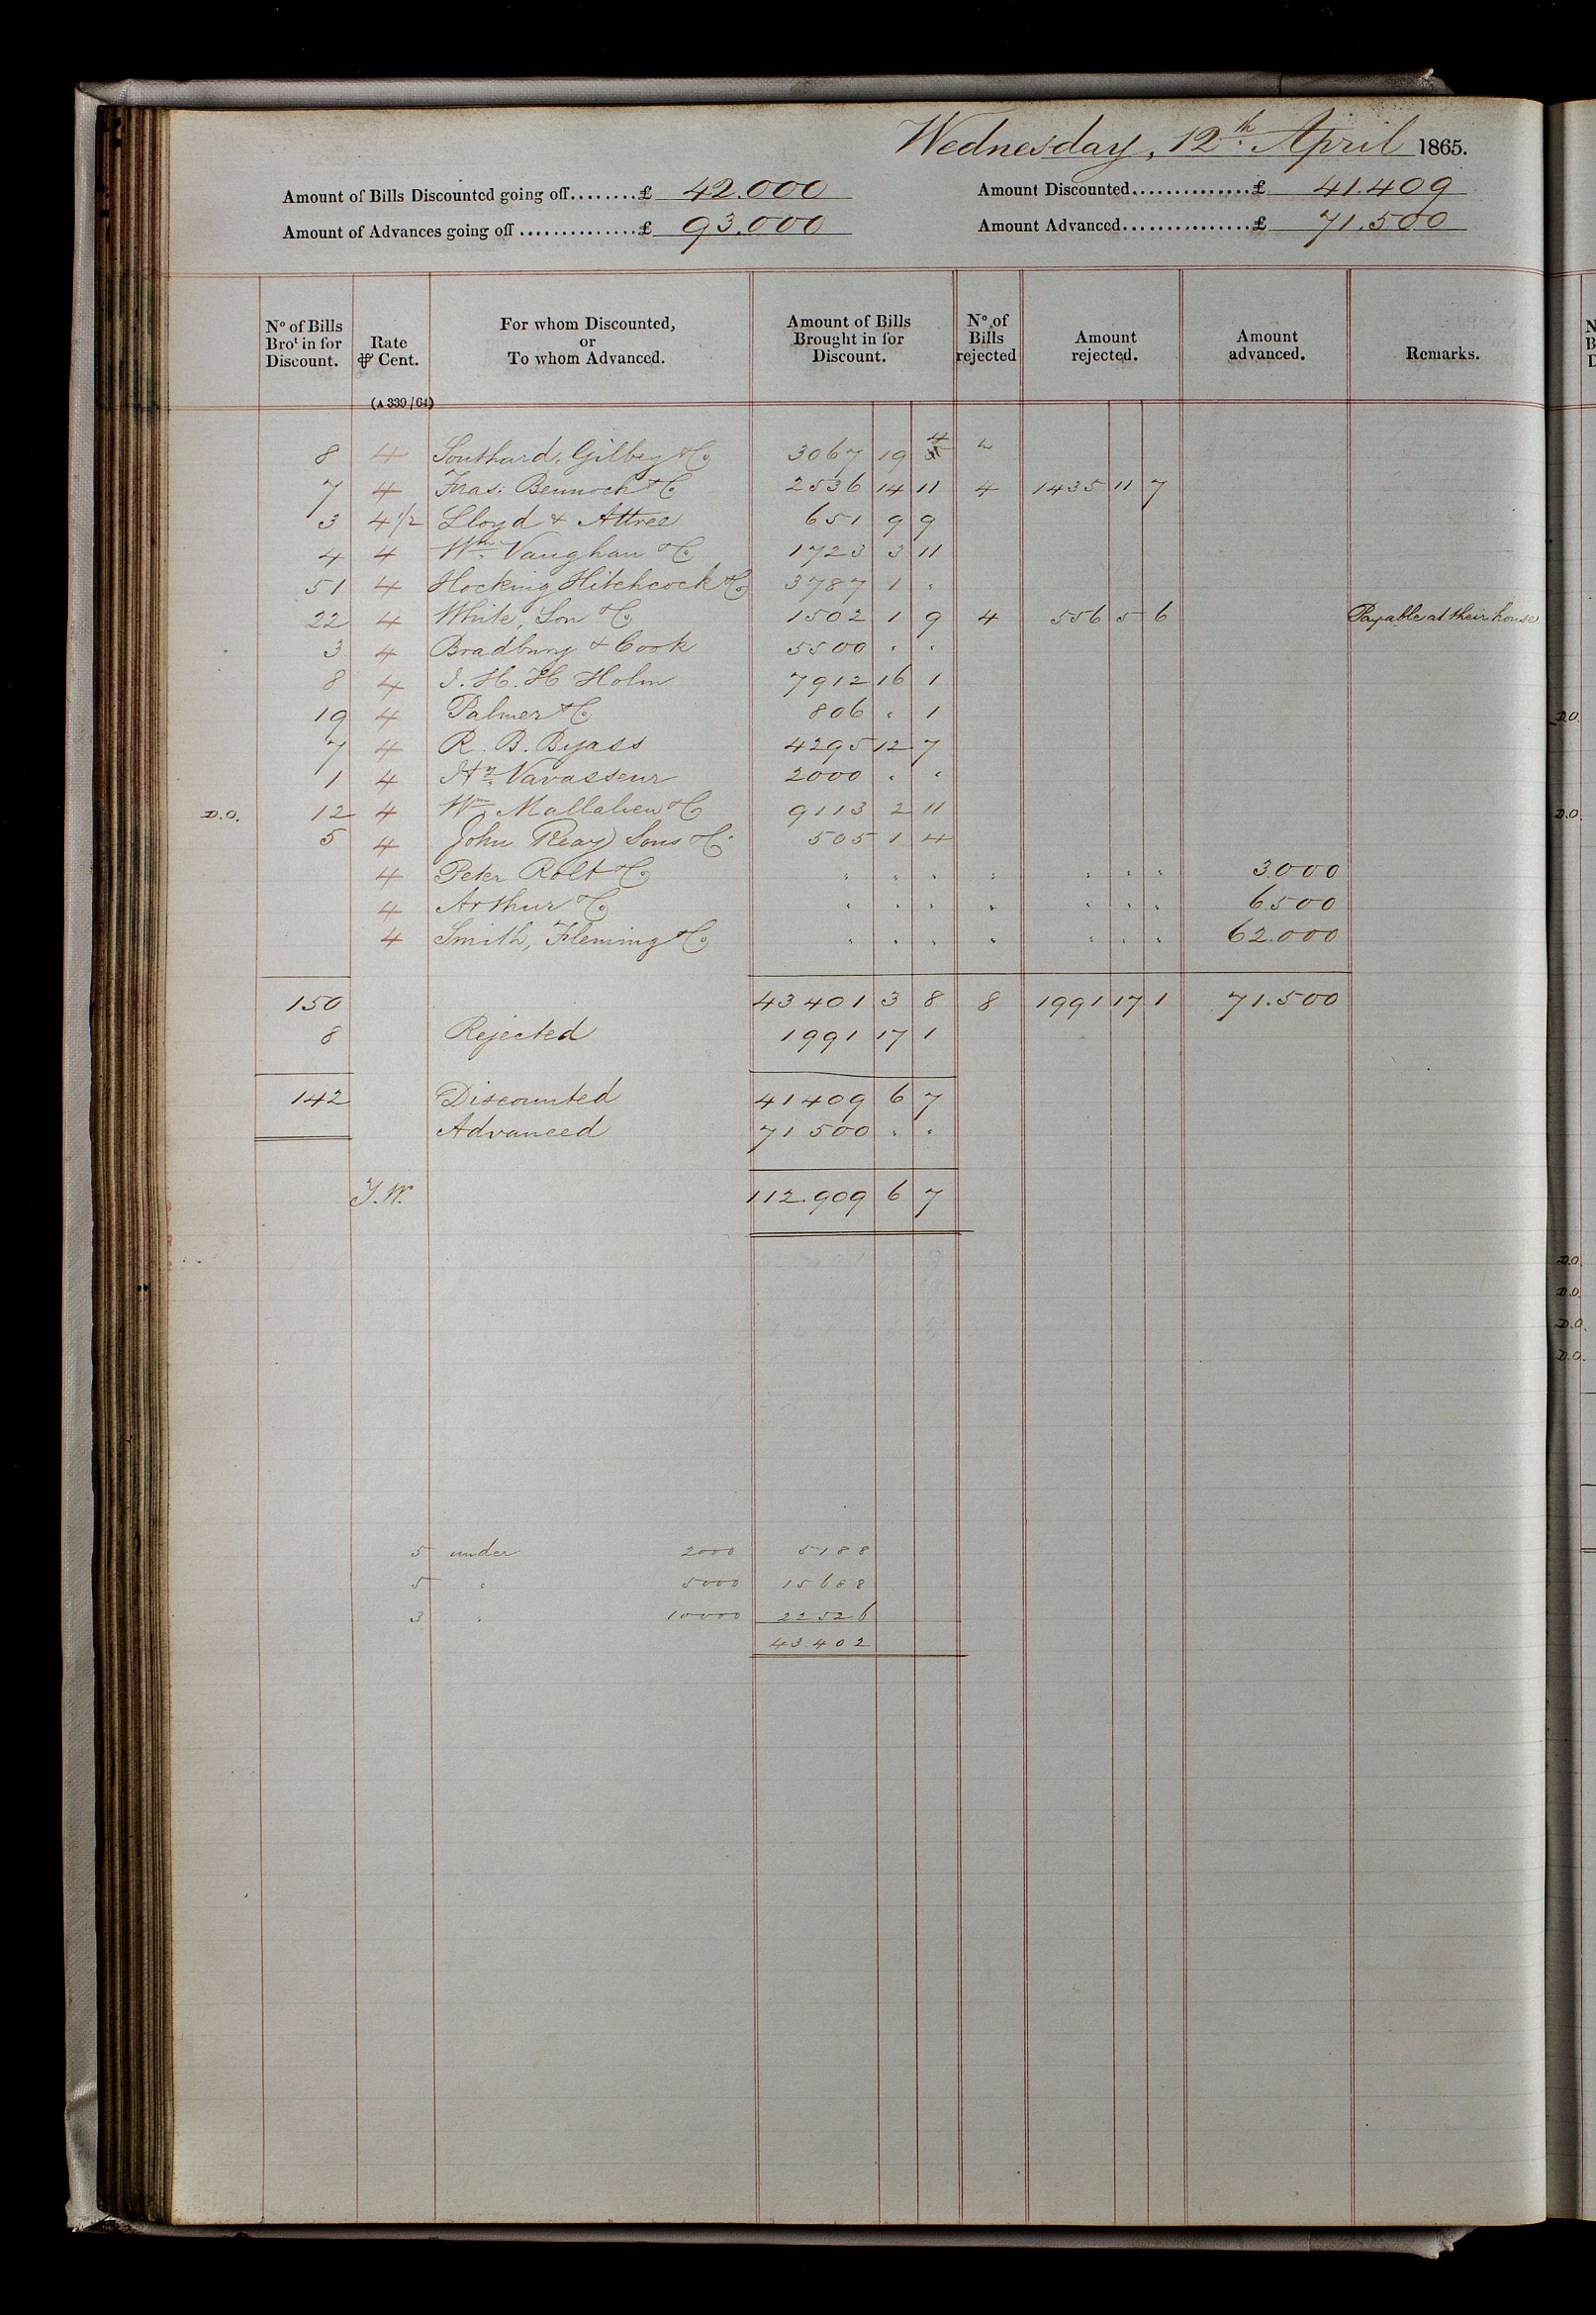 Wednesday, 12th April 1865.
Amount of Bills Discounted going off........£ 42.000 Amount Discounted..............£ 41.409
Amount of Advances going off ..............£ 93.000 Amount Advanced...............£ 71.500
No of Bills Brot in for Discount. Rate ⅌ Cent. For whom Discounted, or To whom Advanced. Amount of Bills Brought in for Discount. No of Bills rejected Amount rejected. Amount advanced. Remarks.
(A 339/64)
8 4 Southard, Gilbey & Co 3067 19 4
7 4 Fras: Bennoch & Co 2536 14 11 4 1435 11 7
3 4 1/2 Lloyd & Attree 651 9 9
4 4 Wm Vaughan & Co 1723 3 11
51 4 Hocking Hitchcock & Co 3787 1 "
22 4 White, Son & Co 1502 1 9 4 556 5 6 Payable at their house
3 4 Bradbury & Cook 5500 " "
8 4 J. H. H Holm 7912 16 1
19 4 Palmer & Co 806 " 1
7 4 R. B. Byass 4295 12 7
1 4 Hy Vavasseur 2000 " "
D.O. 12 4 Wm Mallalieu & Co 9113 2 11
5 4 John Reay Sons & Co 505 1 4
4 Peter Rolt & Co " " " " " " " 3.000
4 Arthur & Co " " " " " " " 6.500
4 Smith, Fleming & Co " " " " " " " 62.000
150 43 401 3 8 8 1991 17 1 71.500
8 Rejected 1991 17 1
142 Discounted 41 409 6 7
Advanced 71 500 " "
J.W. 112.909 6 7
5 under 2000 5188
5 " 5000 15688
3 " 10000 22526
43.402
D.O.
D.O.
D.O.
D.O.
D.O.
D.O.